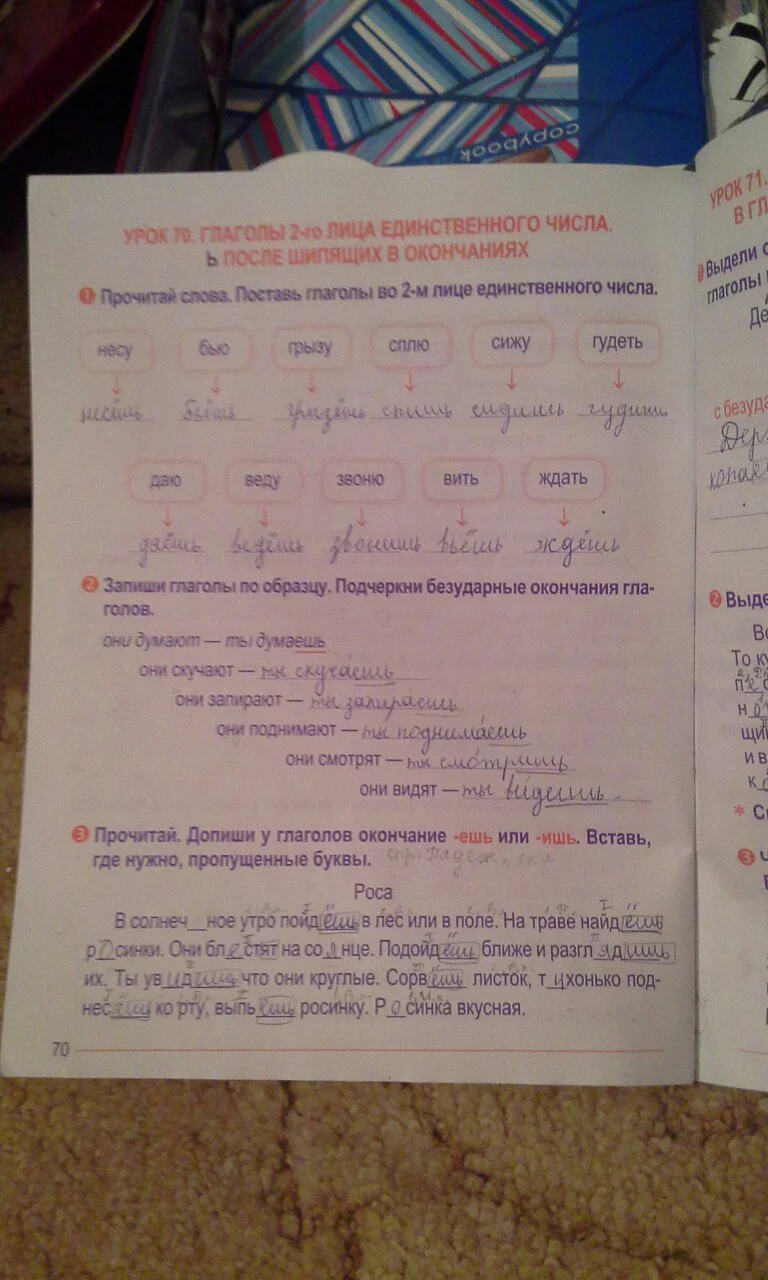 copybook
УРОК 70. ГЛАГОЛЫ 2-го ЛИЦА ЕДИНСТВЕННОГО ЧИСЛА.
Ь ПОСЛЕ ШИПЯЩИХ В ОКОНЧАНИЯХ
1 Прочитай слова. Поставь глаголы во 2-м лице единственного числа.
несу бью грызу сплю сижу гудеть
несёшь бьёшь грызёшь спишь сидишь гудишь
даю веду звоню вить ждать
даёшь ведёшь звонишь вьёшь ждёшь
2 Запиши глаголы по образцу. Подчеркни безударные окончания гла-
голов.
они думают — ты думаешь
они скучают — ты скучаешь
они запирают — ты запираешь
они поднимают — ты поднимаешь
они смотрят — ты смотришь
они видят — ты видешь
3 Прочитай. Допиши у глаголов окончание -ешь или -ишь. Вставь,
где нужно, пропущенные буквы.
Роса
В солнеч_ное утро пойдёшь в лес или в поле. На траве найдёшь
росинки. Они блестят на солнце. Подойдёшь ближе и разглядишь
их. Ты увидишь что они круглые. Сорвёшь листок, тихонько под-
несёшь ко рту, выпьешь росинку. Росинка вкусная.
70
УРОК 71.
В ГЛ
Выдели о
глаголы
Де
с безуда
Держ
копае
2 Выде
Во
То ку
щи
и в
* Сп
3 Ч